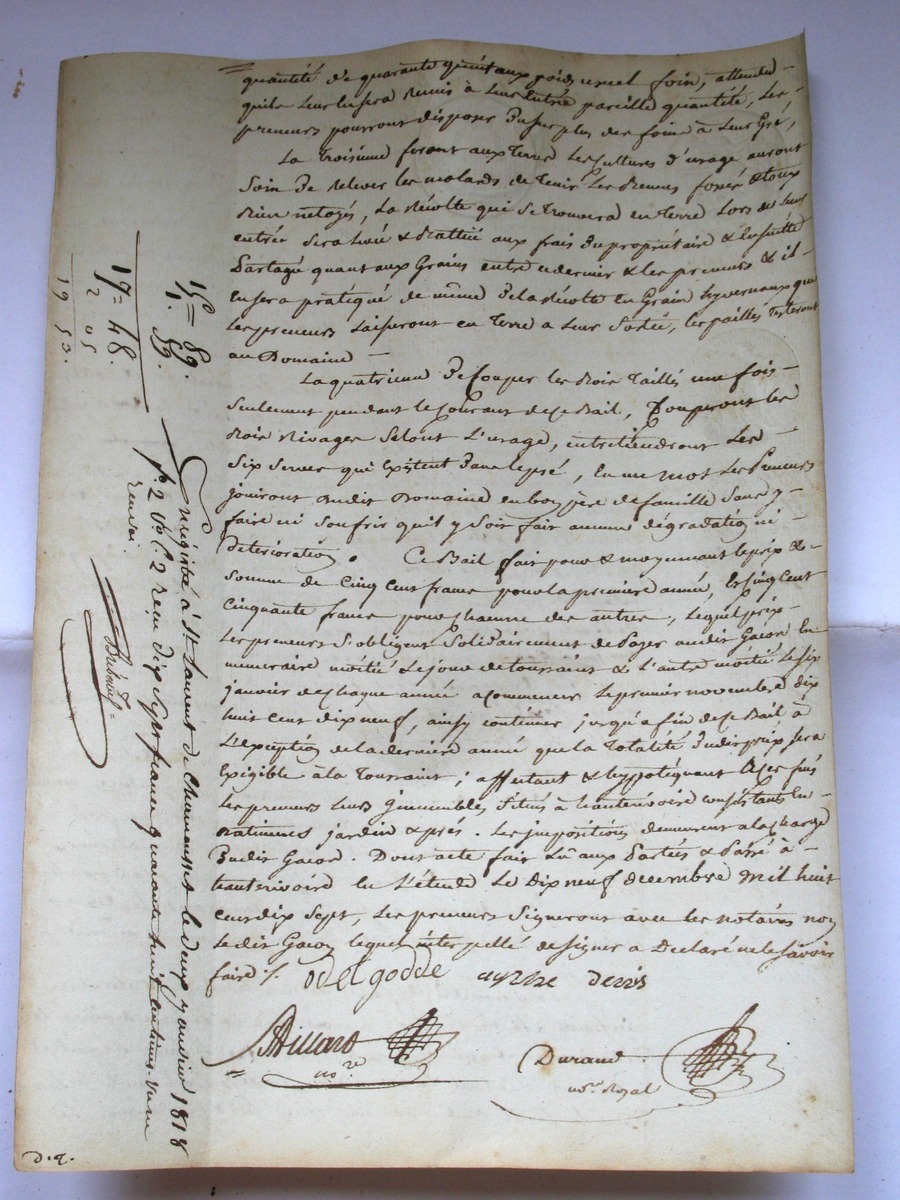 quantité de quarante quintaux poids usuel foin, attendu
qu'ils leur sera remis à leur entrée pareille quantité, Les
preneurs pourront disposer du surplus des foins à leur Gré,
La Troisieme feront aux Terres Les cultures d'usage auront
Soin de relever les molards de tenir Les fossés
bien netoyés, La récolte qui se trouvera en Terre Lors de leur
entrée sera & battue aux frais du propriétaire & Ensuitte
Partagé quant aux Grains entre ce dernier & les preneurs & il
En sera pratiqué de même de la récolte en Grain hyvernaux que
Les preneurs Laisseront en Terre a Leur Sortie, les pailles resteront
au Domaine
La quatrieme de Couper les Bois Taillés une fois
Seulement pendant le Courant de ce Bail, Couperont les
Bois Rivages Selont L'usage, entretiendront Les
Six Serves qui Existent dans le pré, En un mot Les Preneurs
jouiront dudit Domaine en bon père de famille Sans y
faire ni Soufrir quil y Soit fait aucune dégradation ni
Déterioration. Ce Bail fait pour & moyennant le prix &
Somme de Cinq Cent francs pour la premiere année, & Cinq Cent
Cinquante francs pour chacune des autres, Lequel prix
Les preneurs S'obligent Solidairement de Payer audit Gacon En
numeraire moitié Le jour de toussaint & L'autre moitié Le Six
janvier de Chaque année a commencer Le premier novembre dix
huit Cent dix neuf, ainsy continuer jusqu'a fin de Ce Bail, à
L'exception de la derniere année que la Totalité dudit prix sera
Exigible à la Toussaint; affectant & hyppotéquant
Les preneurs Leurs jmmeubles situés à hauterivoire consistans En
Batiments jardin & prés. Les jmpositions demeurent a la charge
Dudit Gacon. Dont acte fait Lû aux Parties & Passé à
hauterivoire En L'étude Le Dix neuf decembre Mil huit
Cent dix Sept, Les preneurs Signeront avec les notaires non
Le dit Gacon Lequel interpellé de signer a Déclaré ne le Savoir
faire ./.
Billard
no.re
Durand
no.re Royal
Enregistré à St Laurent de Chamousset le deux janvier 1818
f.o 2 v.o C. 2 reçu dix sept francs quarante huit centimes.
15 = 89.
1. 59.
17 = 48.
2 05
19 53.
D.q.